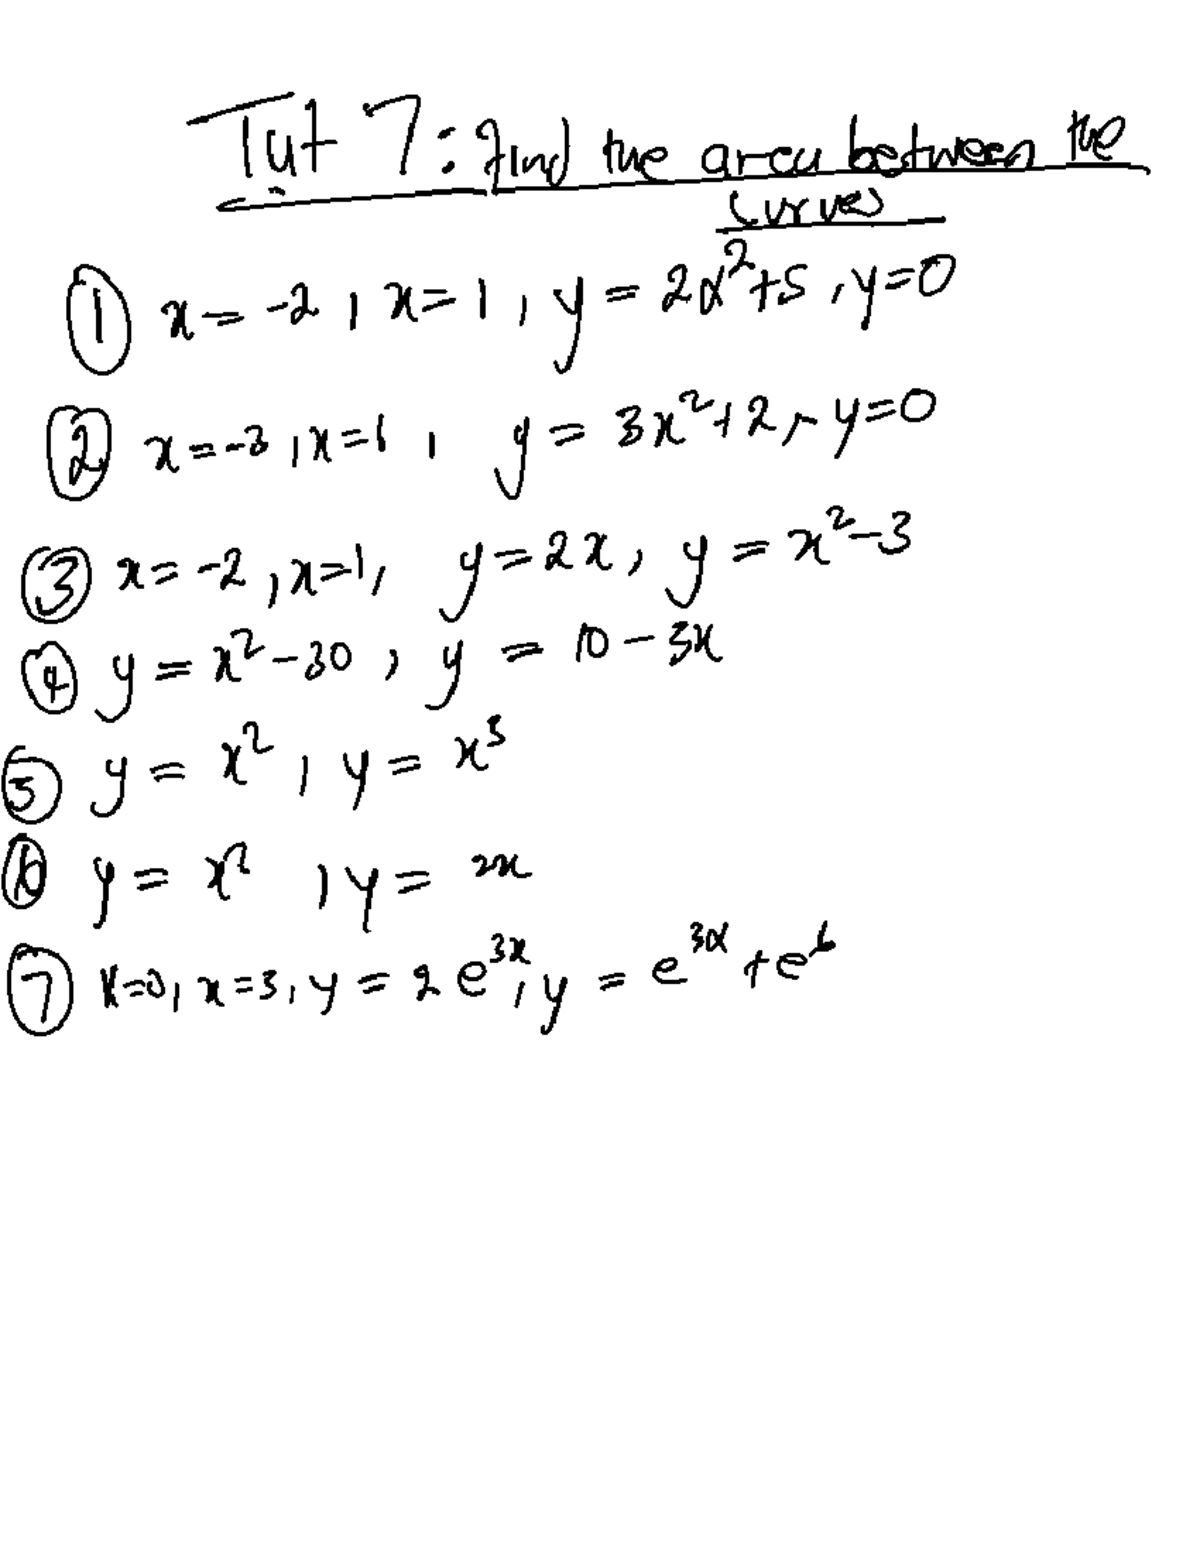 Tut 7: find the area between the
curves
① x = -2, x = 1, y = 2x²+5, y=0
② x = -3, x=1, y = 3x²+2, y=0
③ x = -2, x=1, y = 2x, y = x²-3
④ y = x²-30, y = 10-3x
⑤ y = x², y = x³
⑥ y = x², y = 2x
⑦ x=0, x=3, y = 2e³ˣ, y = e³ˣ+e⁶